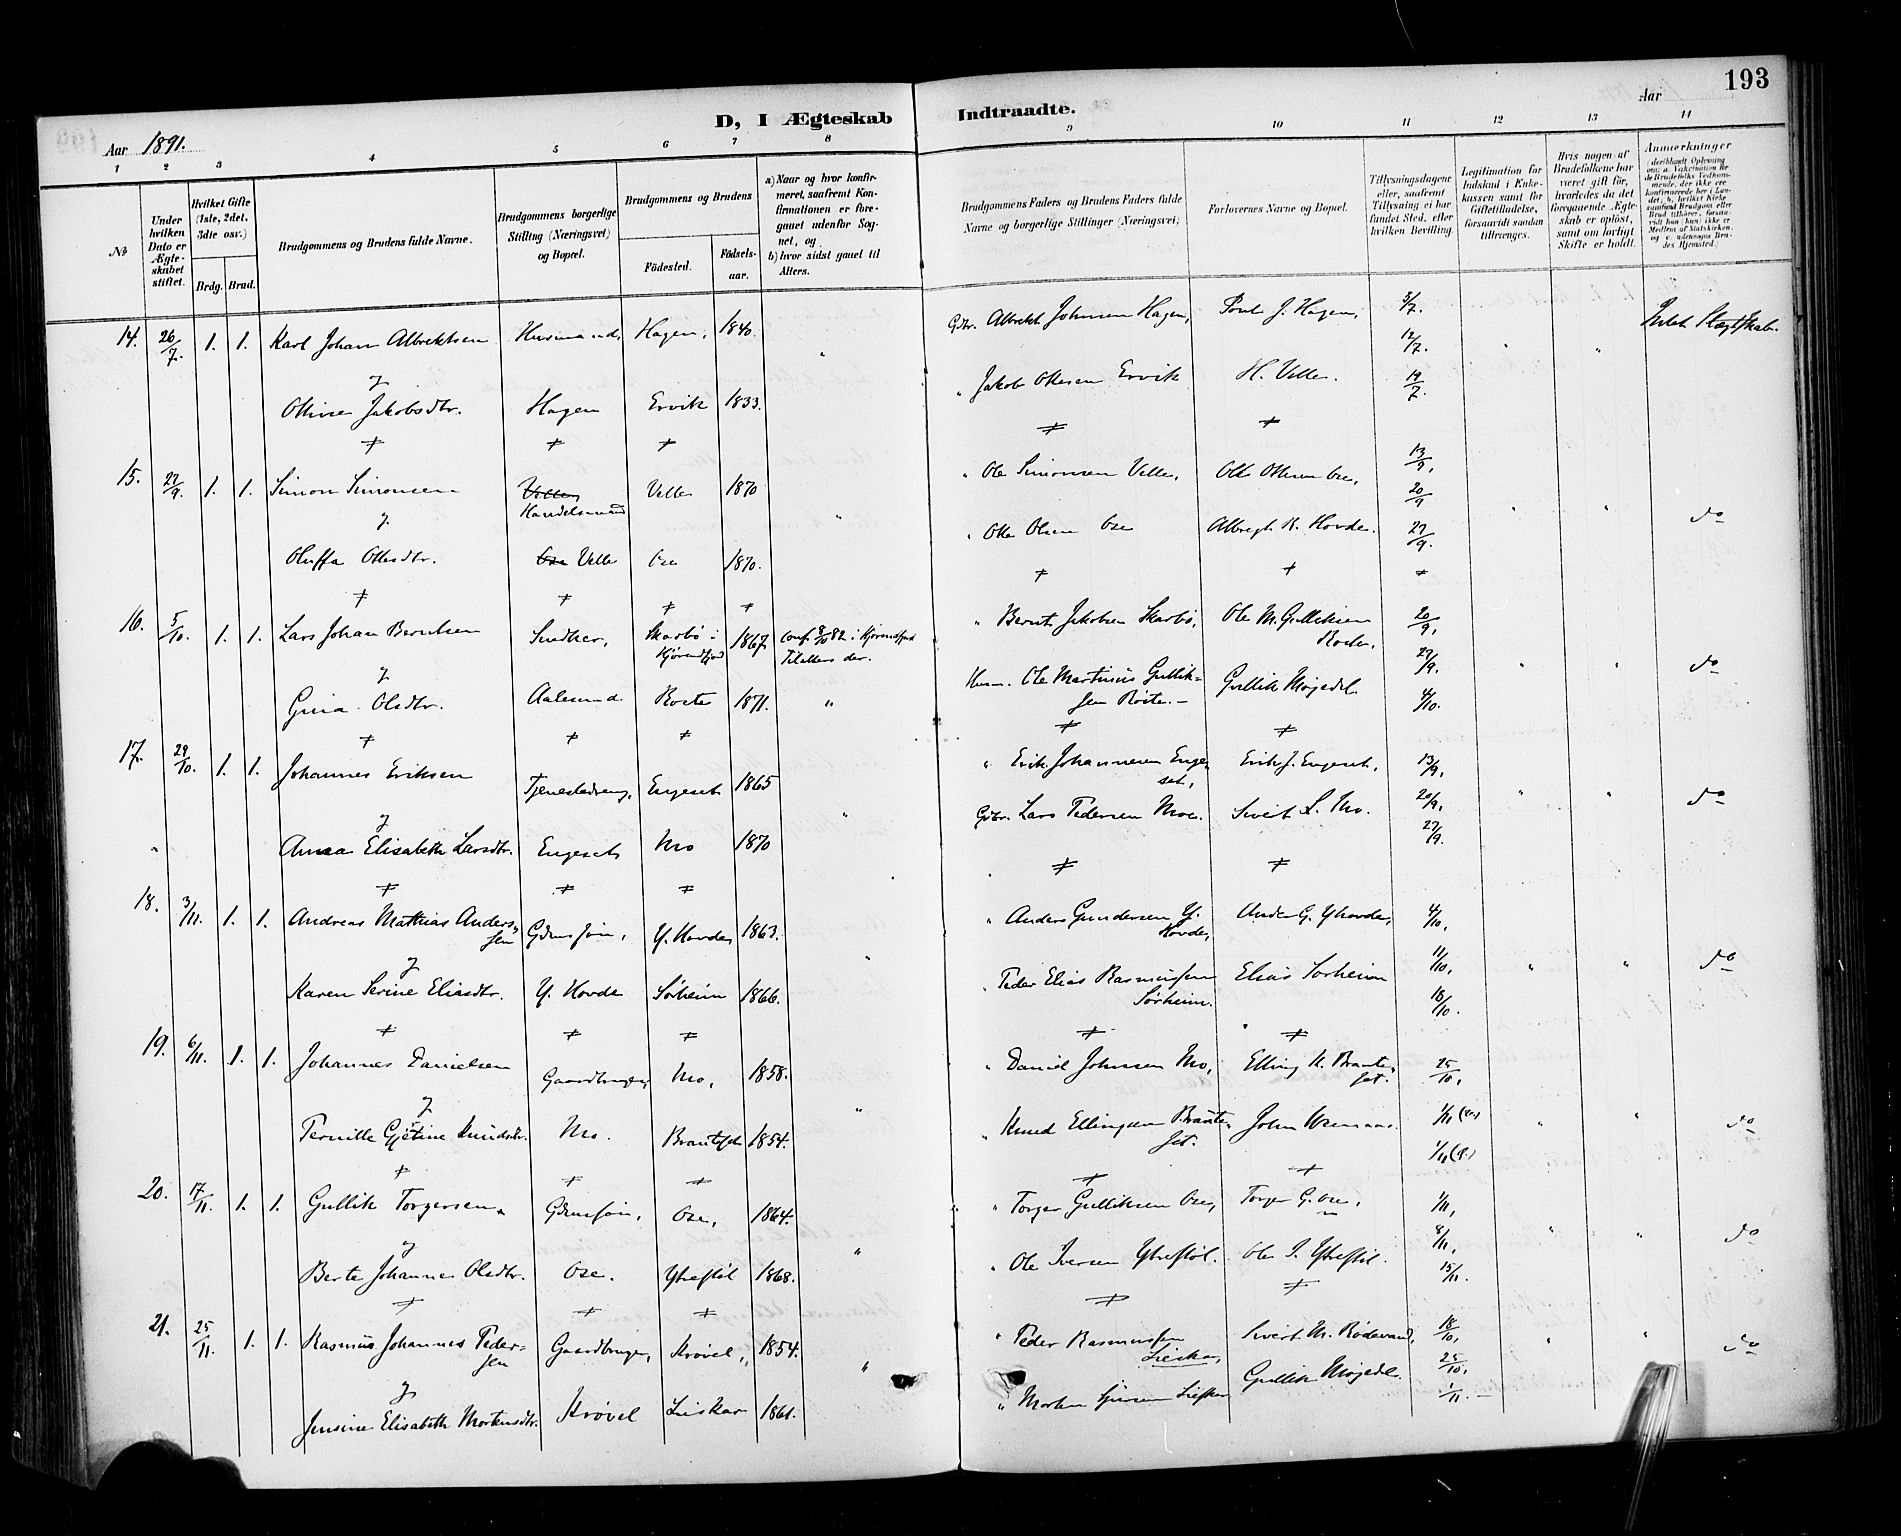 193
D, I Ægteskab Indtraadte.
Aar 1891. Aar
1 2 3 4 5 6 7 8 9 10 11 12 13 14
No
Under hvilken Dato er Ægteskabet stiftet.
Hvilket Gifte (1ste, 2det, 3die osv.)
Brdg. Brud.
Brudgommens og Brudens fulde Navne.
Brudgommens borgerlige Stilling (Næringsvei) og Bopæl.
Brudgommens og Brudens
Födested.
Födselsaar.
a) Naar og hvor konfirmeret, saafremt Konfirmationen er foregaaet udenfor Sognet, og
b) hvor sidst gaaet til Alters.
Brudgommens Faders og Brudens Faders fulde Navne og borgerlige Stillinger (Næringsvei)
Forlovernes Navne og Bopæl.
Tillysningsdagene eller, saafremt Tillysning ei har fundet Sted, efter hvilken Bevilling.
Legitimation for Indskud i Enkekassen samt for Giftetilladelse, forsaavidt saadan tiltrænges.
Hvis nogen af Brudefolkene har været gift för, hvorledes da det foregaaende Ægteskab er oplöst, samt om lovligt Skifte er holdt.
Anmærkninger
14. 26/7. 1. 1. Karl Johan Albrektsen Husmand, Hagen, 1840. " Gdbr. Albrekt Johnsen Hagen, J. Hagen, 5/7. 12/7. " " Intet Slægtskab.
&
Oline Jakobsdtr. Hagen Ervik 1833. " Jakob Ottesen Ervik H. Velle. 19/7.
15. 27/9. 1. 1. Simon Simonsen Velle, Handelsmand Velle 1870 " " Ole Simonsen Velle, Otte Ottesen Ose, 13/9, 20/9 " " do
&
Oluffa Ottesdtr. Ose Velle Ose 1870. " Otte Olsen Ose Albregt K. Hovde. 27/9.
16. 5/10. 1. 1. Lars Johan Berntsen Snedker, Skarbø i Kjørendfjord 1867 conf. 8/10 82 i Kjørendfjord Tilalters der. " Bernt Jakobsen Skarbø, Ole M. Gulliksen Roste, 20/9, 27/9. " " do
&
Gina Olsdtr. Aalesund Roste 1871. " Husm. Ole Martinus Gulliksen Röite. Gullik Mojedel. 4/10.
17. 29/10. 1. 1. Johannes Eriksen Tjenestedreng, Engeset 1865 " " Erik Johannesen Engeset, Erik J. Engeset, 13/9, 20/9, " " do
&
" Anna Elisabeth Larsdtr. Engeset Mo 1870 Gdbr. Lars Pedersen Moe. Sivert L. Mo. 27/9.
18. 3/11. 1. 1. Andreas Mathias Andersen Gdmssøn, Y. Hovde 1863. " " Anders Gundersen Y. Hovde, Anders G. Yhovde, 4/10, 11/10, " " do
&
Karen Serine Eliasdtr. Y. Hovde Sørheim 1866. " Peder Elias Rasmussen Sørheim. Elias Sorheim 18/10.
19. 6/11. 1. 1. Johannes Danielsen Gaardbruger, Mo, 1858. " " Daniel Johnsen Mo, Elling K. Brauteset. 25/10, 1/11 " " do
&
Pernille Gjetine Knudsdtr. Mo. Brautset 1854. " Knud Ellingsen Brauteset. John 1/11
20. 17/11. 1. 1. Gullik Torgersen Gdmssøn, Ose, 1864. " " Torger Gulliksen Ose, Torger G. Ose, 1/11, 8/11, " " do
&
Berte Johannes Olsdtr. Ose. Ytrestöl 1868. " Ole Iversen Ytrestöl. Ole I. Ytrestöl. 15/11.
21. 25/11. 1. 1. Rasmus Johannes Pedersen Gaardbruger, Krövel, 1854. " " Peder Rasmussen Lieskar, Sivert M. Rödevand, 18/10, 25/10, " " do
&
Jensine Elisabeth Mortensdtr. Krövel Lieskar 1861. " Morten Lieskar Gullik Mojedel. 1/11.